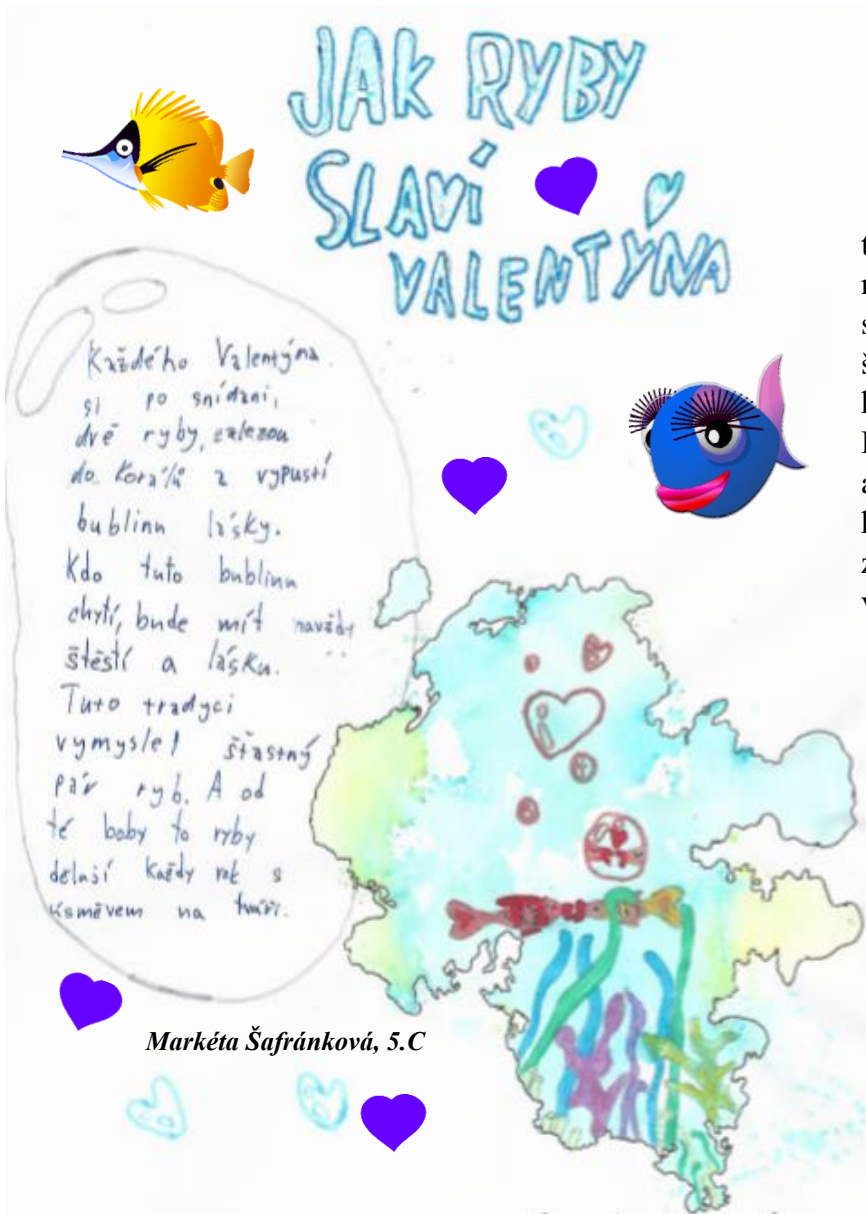 JAK RYBY
SLAVÍ
VALENTÝNA
Každého Valentýna
si po snídani,
dvě ryby, zalezou
do korálů a vypustí
bublinu lásky.
Kdo tuto bublinu
chytí, bude mít navždy
štěstí a lásku.
Tuto tradyci
vymyslel šťastný
pár ryb. A od
té boby to ryby
dělají každý rok s
úsměvem na tváři.
Markéta Šafránková, 5.C